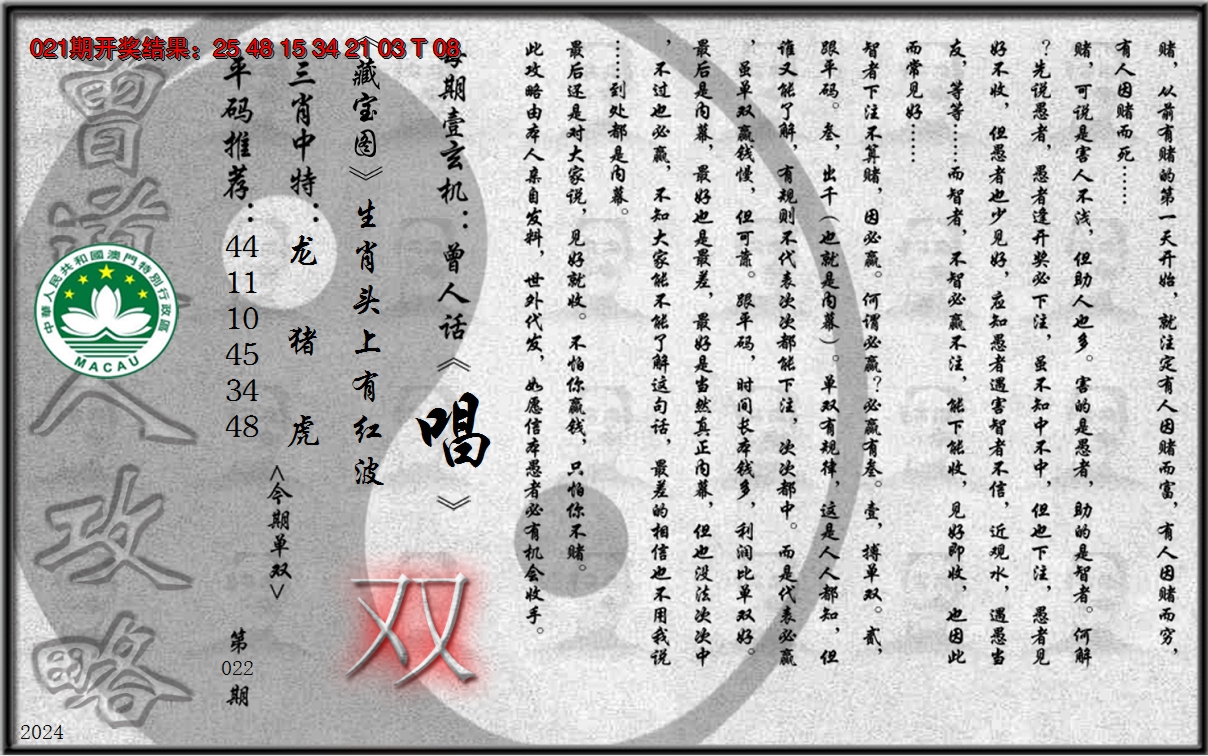 021期开奖结果：25 48 15 34 21 03 T 08
赌，从前有赌的第一天开始，就注定有人因赌而富，有人因赌而穷，
有人因赌而死……
赌，可说是害人不浅，但助人也多。害的是愚者，助的是智者。何解
？先说愚者，愚者逢开奖必下注，虽不知中不中，但也下注，愚者见
好不收，但愚者也少见好，应知愚者遇害智者不信，近观水，遇愚当
友，等等……而智者，不智必赢不注，能下能收，见好即收，也因此
而常见好……
智者下注不算赌，因必赢。何谓必赢？必赢有叁。壹，搏单双。贰，
跟平码。叁，出千（也就是内幕）。单双有规律，这是人人都知，但
谁又能了解，有规则不代表次次都能下注，次次都中。而是代表必赢
，虽单双赢钱慢，但可靠。跟平码，时间长本钱多，利润比单双好。
最后是内幕，最好也是最差，最好是当然真正内幕，但也没法次次中
，不过也必赢，不知大家能不能了解这句话，最差的相信也不用我说
……到处都是内幕。
最后还是对大家说，见好就收。不怕你赢钱，只怕你不赌。
此攻略由本人亲自发料，世外代发，如愿信本愚者必有机会收手。
每期壹玄机：曾人话《唱》
《藏宝图》生肖头上有红波
双
三肖中特：龙 猪 虎
<今期单双>
平码推荐：44 11 10 45 34 48
第022期
曾道人攻略
中華人民共和國澳門特別行政區
MACAU
2024